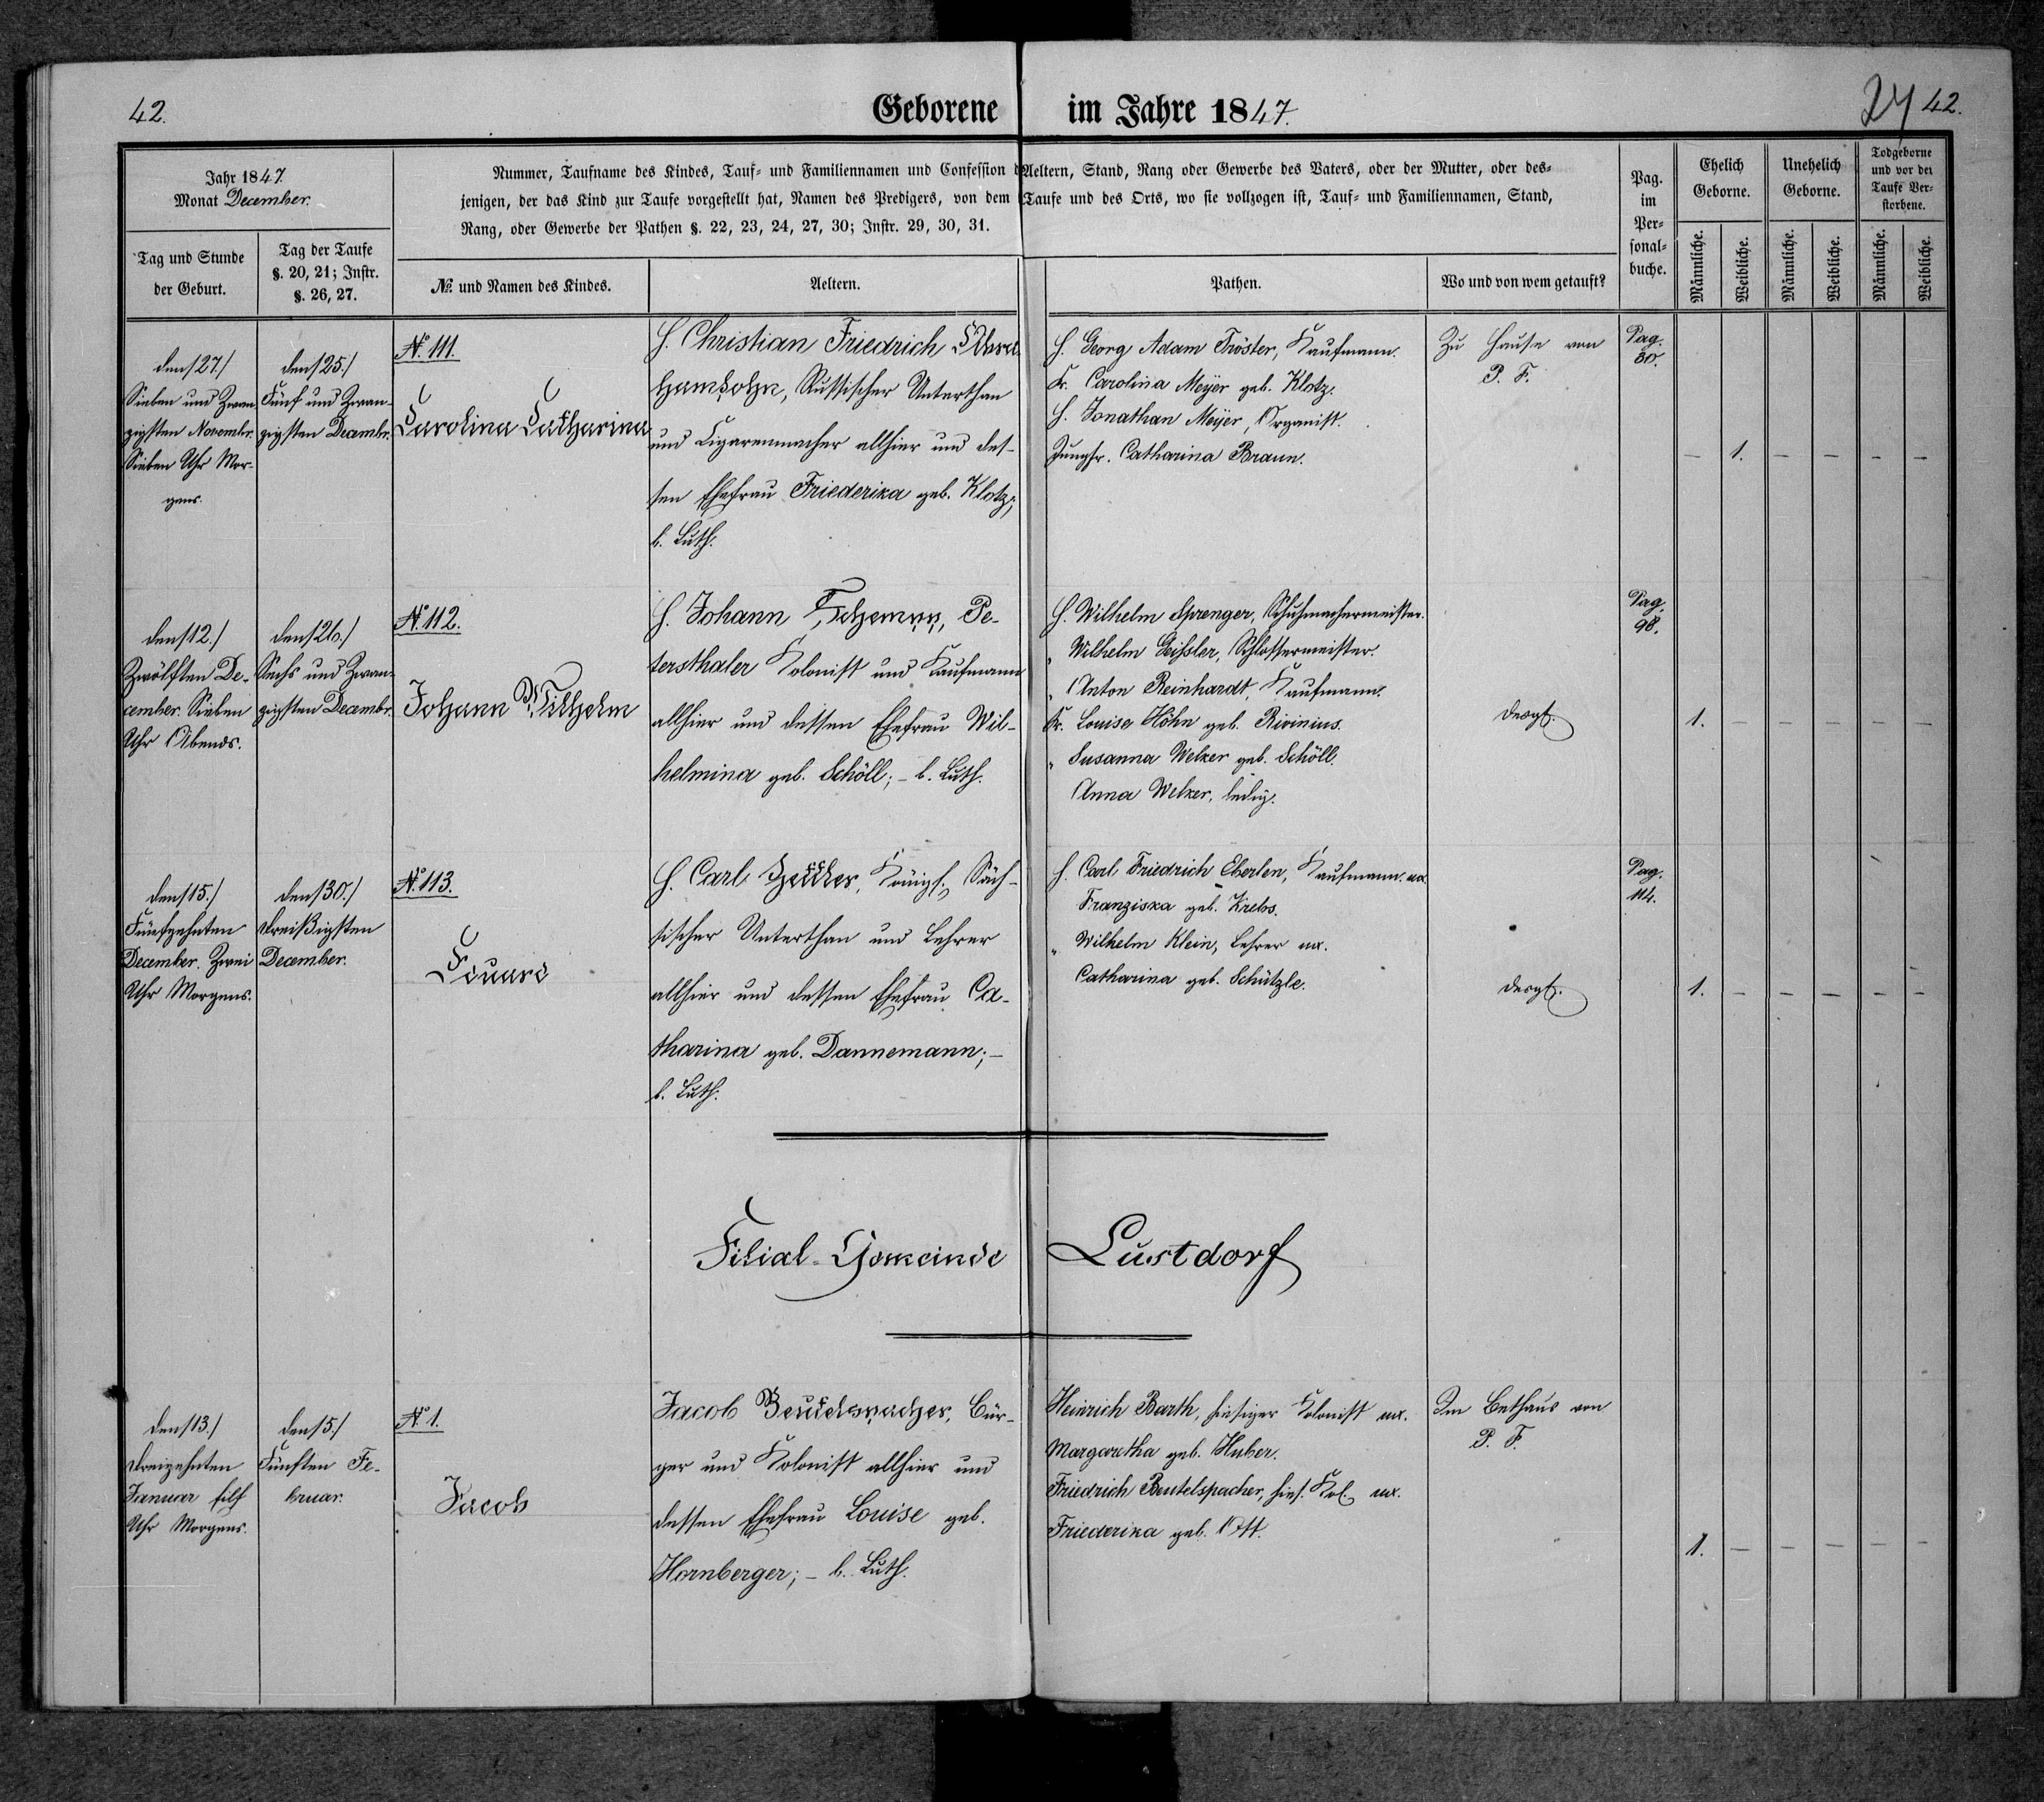 42.
Geborene im Jahre 1847.
27 42.
Jahr 1847.
Monat December.
Nummer, Taufname des Kindes, Tauf- und Familiennamen und Confession d Aeltern, Stand, Rang oder Gewerbe des Vaters, oder der Mutter, oder des-
jenigen, der das Kind zur Taufe vorgestellt hat, Namen des Predigers, von dem Taufe und des Orts, wo sie vollzogen ist, Tauf- und Familiennamen, Stand,
Rang, oder Gewerbe der Pathen §. 22, 23, 24, 27, 30; Instr. 29, 30, 31.
Pag.
im
Per-
sonal-
buche.
Ehelich
Geborne.
Unehelich
Geborne.
Todgeborne
und vor der
Taufe Ver-
storbene.
Tag und Stunde
der Geburt.
Tag der Taufe
§. 20, 21; Instr.
§. 26, 27.
No. und Namen des Kindes.
Aeltern.
Pathen.
Wo und von wem getauft?
Männliche.
Weibliche.
Männliche.
Weibliche.
Männliche.
Weibliche.
den/27./
Sieben und Zwan
zigsten Novembr.
Sieben Uhr Mor-
gens.
den/25./
Fünf und Zwan-
zigsten Decembr.
No. 111.
Carolina Catharina
H. Christian Friedrich Abra
hamsohn, Russischer Unterthan
und Cigarenmacher allhier und des-
sen Ehefrau Friederika geb. Klotz;
b. Luth.
H. Georg Adam Tröster, Kaufmann.
Fr. Carolina Meÿer geb. Klotz.
H. Jonathan Meÿer, Organist.
Jungfr. Catharina Braun.
Zu Hause von
P. F.
Pag.
80.
– 1. – – – –
den/12./
Zwölften De-
cember. Sieben
Uhr Abends.
den/26./
Sechs und Zwan-
zigsten Decembr.
No. 112.
Johann Wilhelm
H. Johann Pe-
tersthaler Kolonist und Kaufmann
allhier und dessen Ehefrau Wil-
helmina geb. Schöll; – b. Luth.
H. Wilhelm Sprenger, Schuhmachermeister.
" Wilhelm Geissler, Schlossermeister.
" Anton Reinhardt, Kaufmann.
Fr. Louise Höhn geb. Rivinius.
" Susanna Welker geb. Schöll.
Anna Welker, ledig.
desgl.
Pag.
98.
1. – – – – –
den/15./
Fünfzehnten
December. Zwei
Uhr Morgens.
den/30./
Dreißigsten
December.
No. 113.
Eduard
H. Carl Königl. Säch-
sischer Unterthan und Lehrer
allhier und dessen Ehefrau Ca-
tharina geb. Dannemann; –
b. Luth.
H. Carl Friedrich Eberlen, Kaufmann. ux.
Franziska geb. Krebs.
" Wilhelm Klein, Lehrer ux.
Catharina geb. Schützle.
desgl.
Pag.
114.
1. – – – – –
Filial-Gemeinde Lustdorf
den/13./
Dreizehnten
Januar Eilf
Uhr Morgens.
den/5./
Fünften Fe-
bruar.
No. 1.
Jacob
Jacob Beutelspacher, Bür-
ger und Kolonist allhier und
dessen Ehefrau Louise geb.
Hornberger; – b. Luth.
Heinrich Barth, hiesiger Kolonist ux.
Margaretha geb. Huber.
Friedrich Beutelspacher, hies. Kol. ux.
Friederika geb. Ott.
Im Bethaus von
P. F.
1. – – – – –